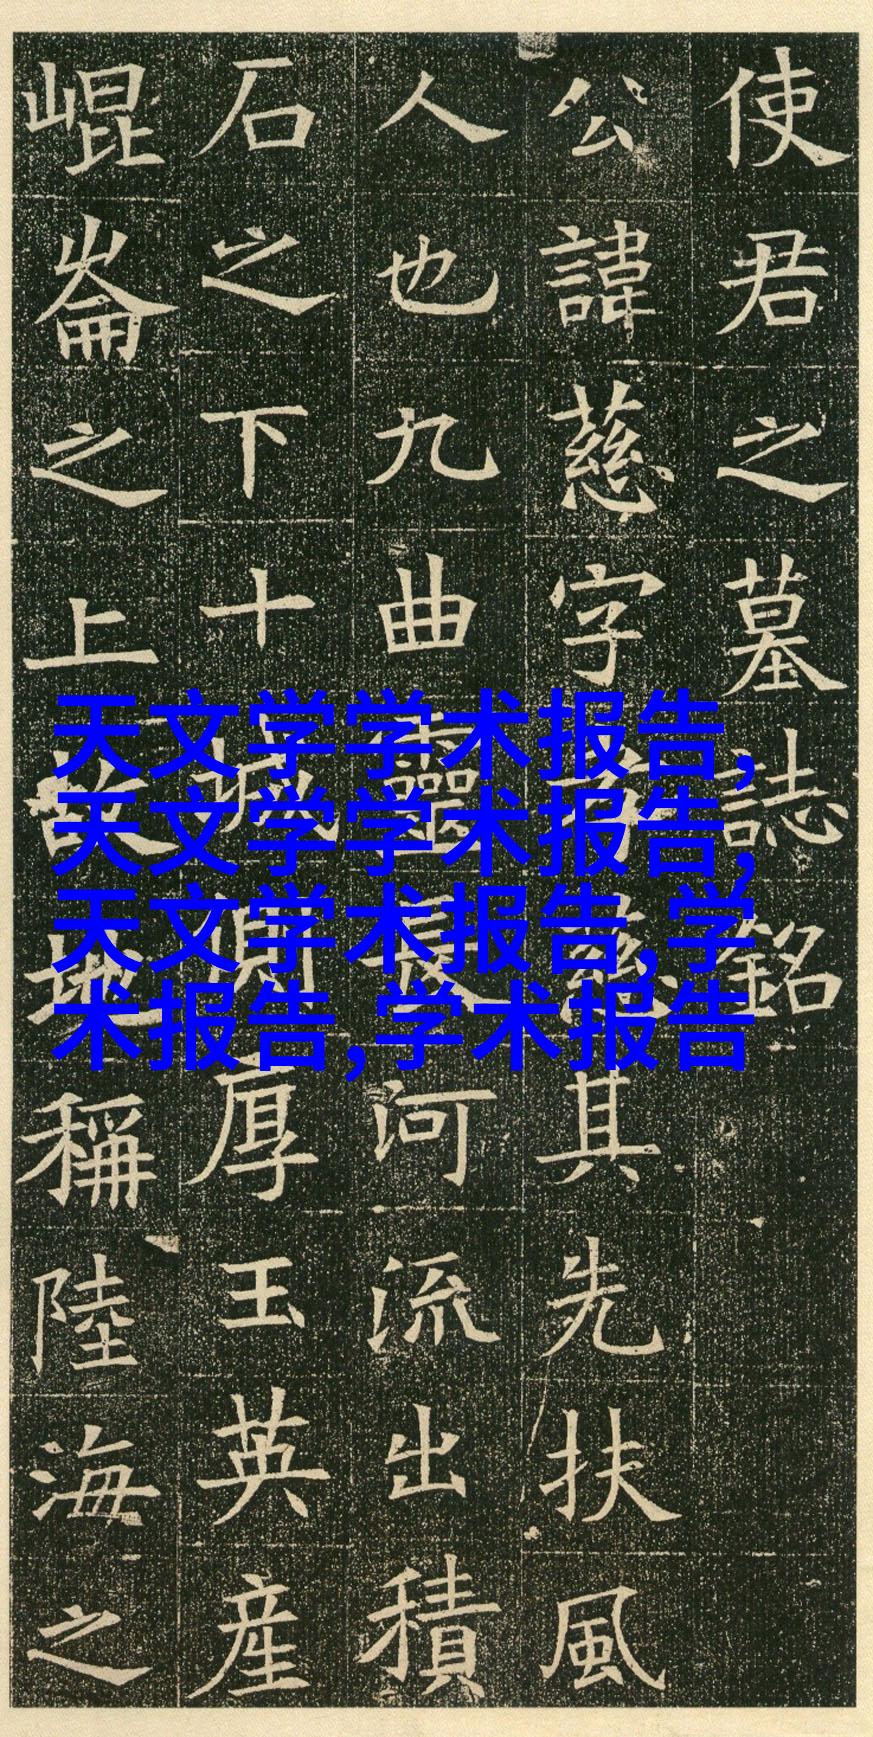 使君之墓誌銘
公諱慈字孝慈其先扶風
人也九曲靈長河流出積
石之下十城側厚玉英産
崐崙之上故地稱陸海之
天文学学术报告,
天文学学术报告,
天文学术报告,学
术报告,学术报告